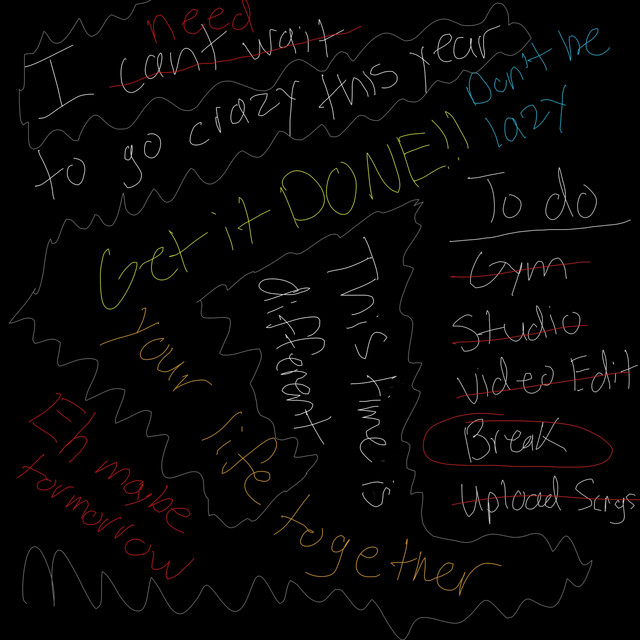 need
I can't wait
to go crazy this year
Don't be
lazy
Get it DONE!!
To do
Gym
Studio
Video Edit
Break
Upload Songs
This time is
different
Your life together
Eh maybe
tormorrow